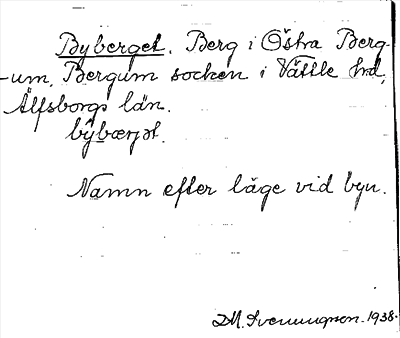 Byberget. Berg i Östra Berg-
um, Bergum socken i Vättle hd,
Älfsborgs län.
bybærjət.
Namn efter läge vid byn.
D.M. Svenungson. 1938.